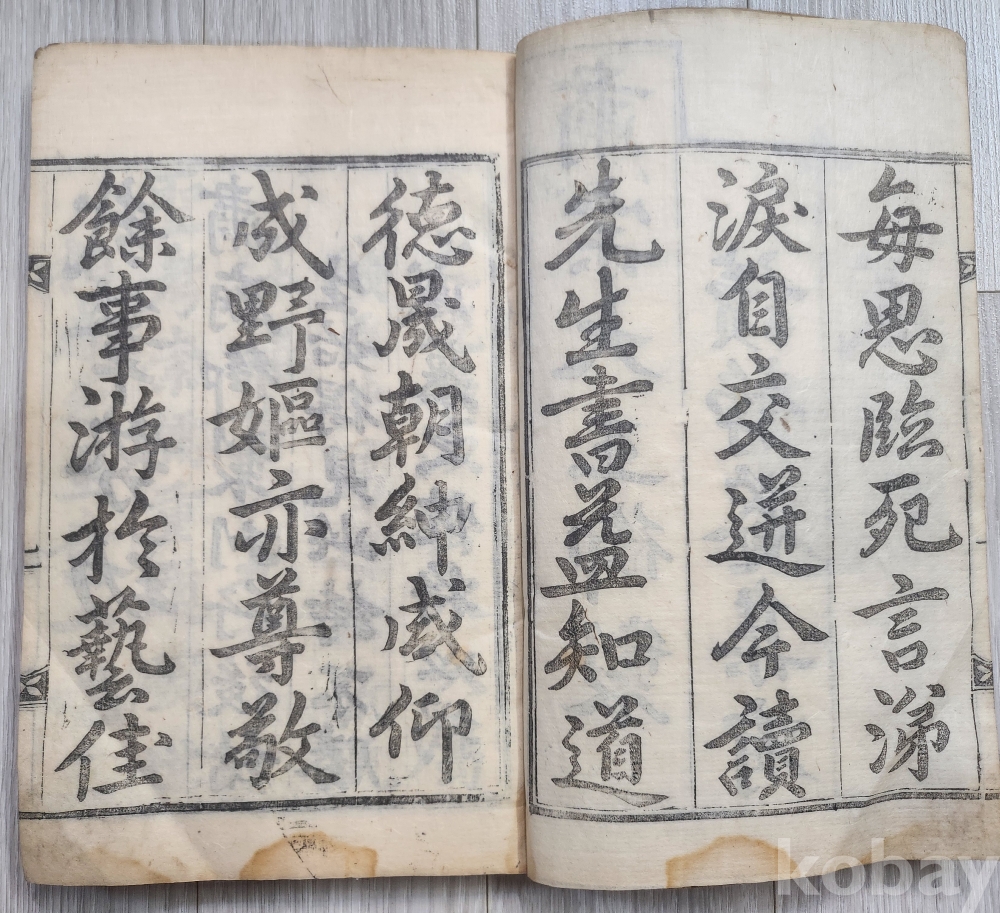 每思臨死言涕
淚自交迸今讀
先生書益知道
德晟朝紳咸仰
成野嫗亦尊敬
餘事游於藝佳
kobay